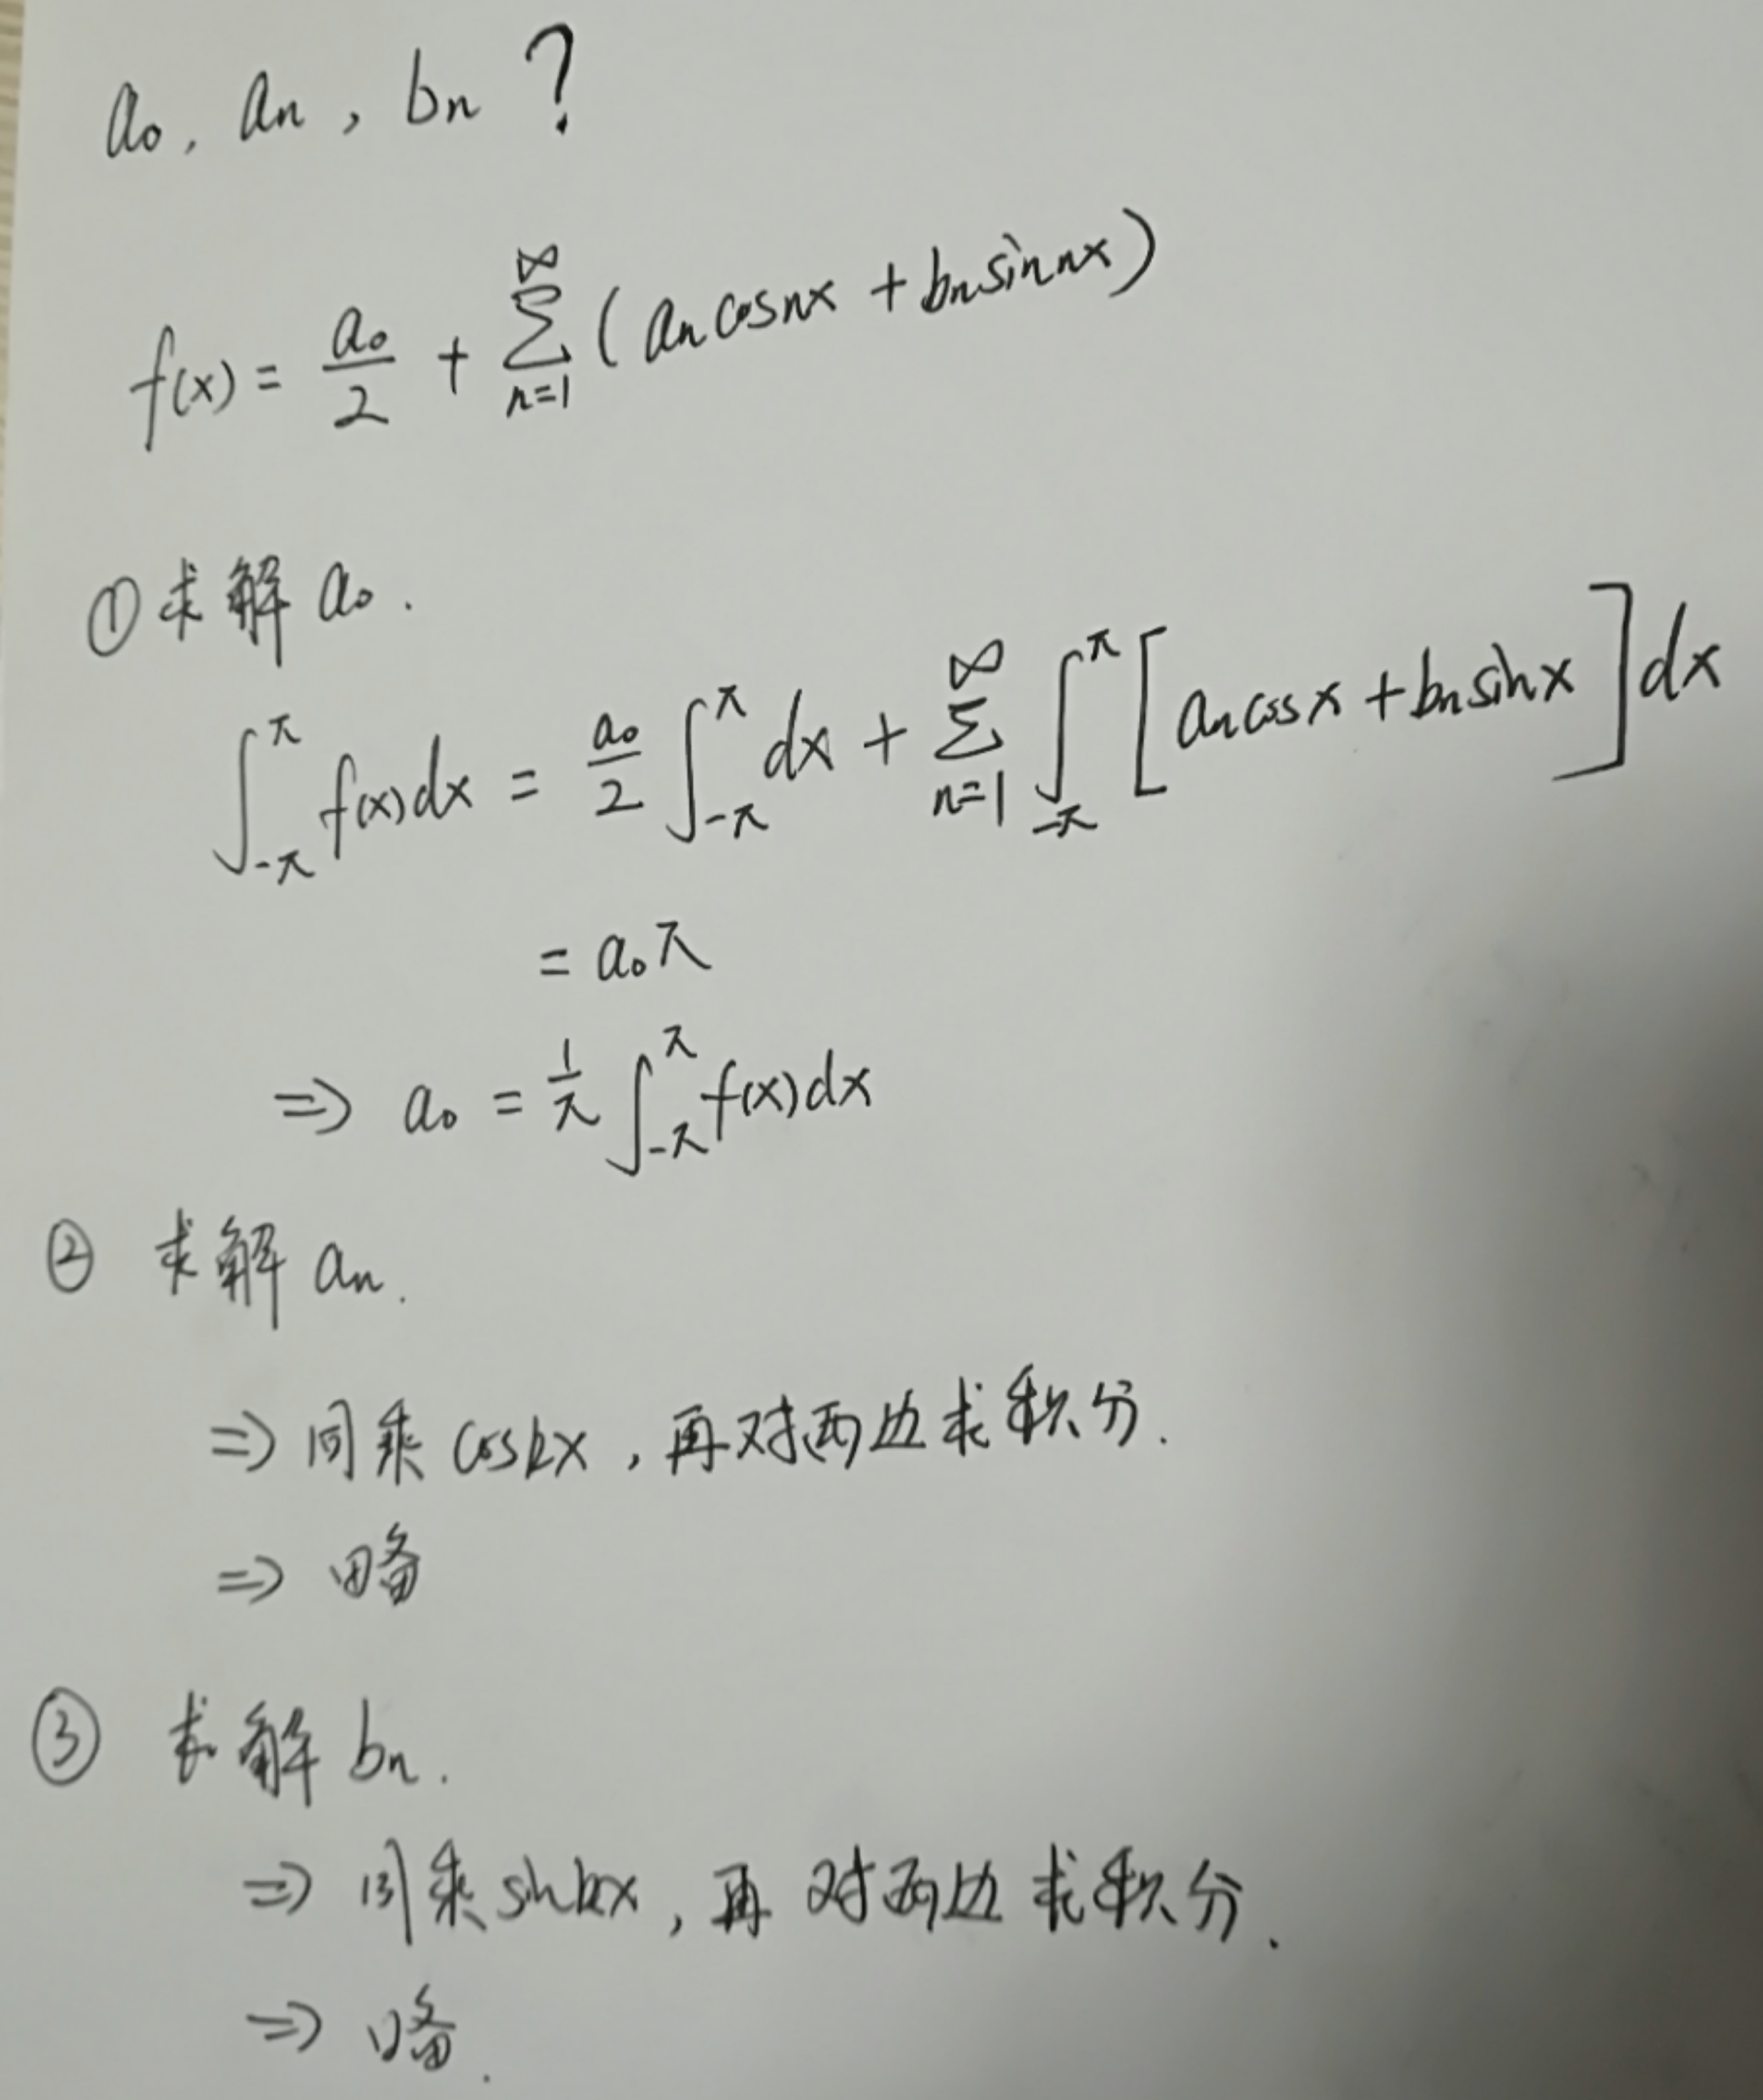 a₀, aₙ, bₙ ?
f(x) = a₀/2 + ∑_{n=1}^{∞} (aₙ cosnx + bₙ sinnx)
① 求解 a₀.
∫_{-π}^{π} f(x)dx = a₀/2 ∫_{-π}^{π} dx + ∑_{n=1}^{∞} ∫_{-π}^{π} [aₙ cosx + bₙ sinx] dx
= a₀π
⇒ a₀ = 1/π ∫_{-π}^{π} f(x)dx
② 求解 aₙ.
⇒ 同乘 coskx, 再对两边求积分.
⇒ 略
③ 求解 bₙ.
⇒ 同乘 sinkx, 再对两边求积分.
⇒ 略.